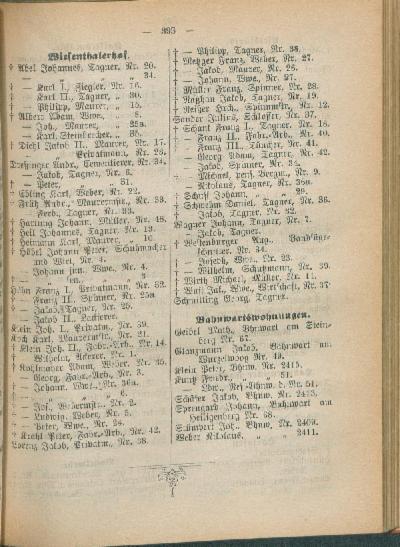 — 395 —
Wiesenthalerhof.
† Abel Johannes, Tagner, Nr. 20.
† „ „ „ 34.
† — Karl I., Ziegler, Nr. 16.
— Karl II., Tagner, „ 30.
† — Philipp, Maurer, „ 15.
† Albert Adam, Wwe., „ 8.
— Joh., Maurer, „ 25a.
— Karl, Steinbrecher, „ 35.
† Diehl Jakob II., Maurer, Nr. 17.
Privatmann, Nr. 26.
Andr., Cementierer, Nr. 34.
— Jakob, Tagner, Nr. 6.
† — Peter, „ „ 31.
† Ebling Karl, Weber, Nr. 22.
† Früh Andr., Maurermstr., Nr. 33.
— Ferd., Tagner, Nr. 23.
† Hartung Johann, Müller, Nr. 48.
† Heil Johannes, Tagner, Nr. 13.
† Heimann Karl, Maurer, „ 10.
† Höbel Johann Peter, Schuhmacher
und Wwe., Nr. 4.
— Johann jun., Wwe., Nr. 4.
† „ „ „ „
Helm Franz I., Privatmann, Nr. 32.
† — Franz II., Spinner, Nr. 25a
— Jakob, Tagner, Nr. 25.
† — Jakob II., Lackierer.
Klein Joh. I., Privatm., Nr. 39.
Koch Karl, Maurermstr., Nr. 21.
† Klein Joh. II., Fabr.-Arb., Nr. 14.
— Wilhelm, Ackerer, Nr. 1.
† Kohlmayer Adam, Weber, Nr. 25.
— Georg, Fabr.-Arb., Nr. 3.
† — Johann, Wwe., Nr. 36a.
† „ „ „ 6.
— Jos., Webermstr., Nr. 2.
† — Ludwig, Weber, Nr. 5.
† — Peter, Wwe., Nr. 24.
† Krehl Peter, Fabr.-Arb., Nr. 42.
Lorenz Jakob, Privatm., Nr. 38.
† — Philipp, Tagner, Nr. 38.
† Metzger Franz, Weber, Nr. 27.
† — Jakob, Maurer, Nr. 26.
† — Johann, Wwe., Nr. 27.
Müller Franz, Spinner, Nr. 28.
† Rothhan Jakob, Tagner, Nr. 19.
† Reiser Hrch., Spinnmstr., Nr. 12.
Sander Julius, Schlosser, Nr. 37.
† Schant Franz I., Tagner, Nr. 16.
† — Franz II., Fabr.-Arb., Nr. 40.
† — Franz III., Tüncher, Nr. 41.
— Georg Adam, Tagner, Nr. 44.
— Jakob, Spinner, Nr. 24.
— Michael, pens. Bergm., Nr. 9.
— Nikolaus, Tagner, Nr. 36a.
† Schiff Johann, „ „ 29.
† Schwehm Daniel, Tagner, Nr. 36.
† — Jakob, Tagner, Nr. 32.
Wagner Johann, Tagner, Nr. 7.
— Jakob, Tagner.
† Wesenburger Aug., Bandsäge-
schneider, Nr. 34.
— Joseph, Wwe., Nr. 23.
† — Wilhelm, Schutzmann, Nr. 39.
† Wirth Michael, Müller, Nr. 11.
† Wolf Jak., Wwe., Wirtschaft, Nr. 37.
Schmitting Georg, Tagner.
Bahnwartswohnungen.
Geibel Math., Bhnwart am Stein-
berg Nr. 67.
Glanzmann Jakob, Bahnwart am
Wurzelwoog Nr. 49.
Klein Peter, Bhnw. Nr. 2415.
Kuntz Friedr., „ „ 51.
— Ldw., Res.-Bhnw. d. Nr. 51.
Schäfer Jakob, Bhnw. Nr. 2413.
Sprengard Johann, Bahnwart am
Heiligenberg Nr. 68.
Stümpert Joh., Bhnw. Nr. 2409.
Weber Nikolaus, „ „ 2411.